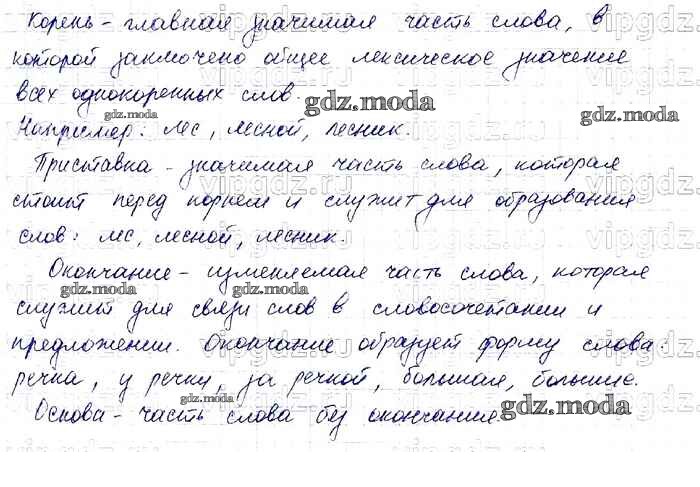 Корень - главная значимая часть слова, в
которой заключено общее лексическое значение
всех однокоренных слов.
gdz.moda
gdz.moda
Например: лес, лесной, лесник.
Приставка - значимая часть слова, которая
стоит перед корнем и служит для образования
gdz.moda
gdz.moda
слов: лес, лесной, лесник.
Окончание - изменяемая часть слова, которая
gdz.moda
gdz.moda
служит для связи слов в словосочетании и
предложении. Окончание образует форму слова:
речка, у речки, за речкой, большая, большие.
gdz.moda
gdz.moda
Основа - часть слова без окончания.
vipgdz.ru